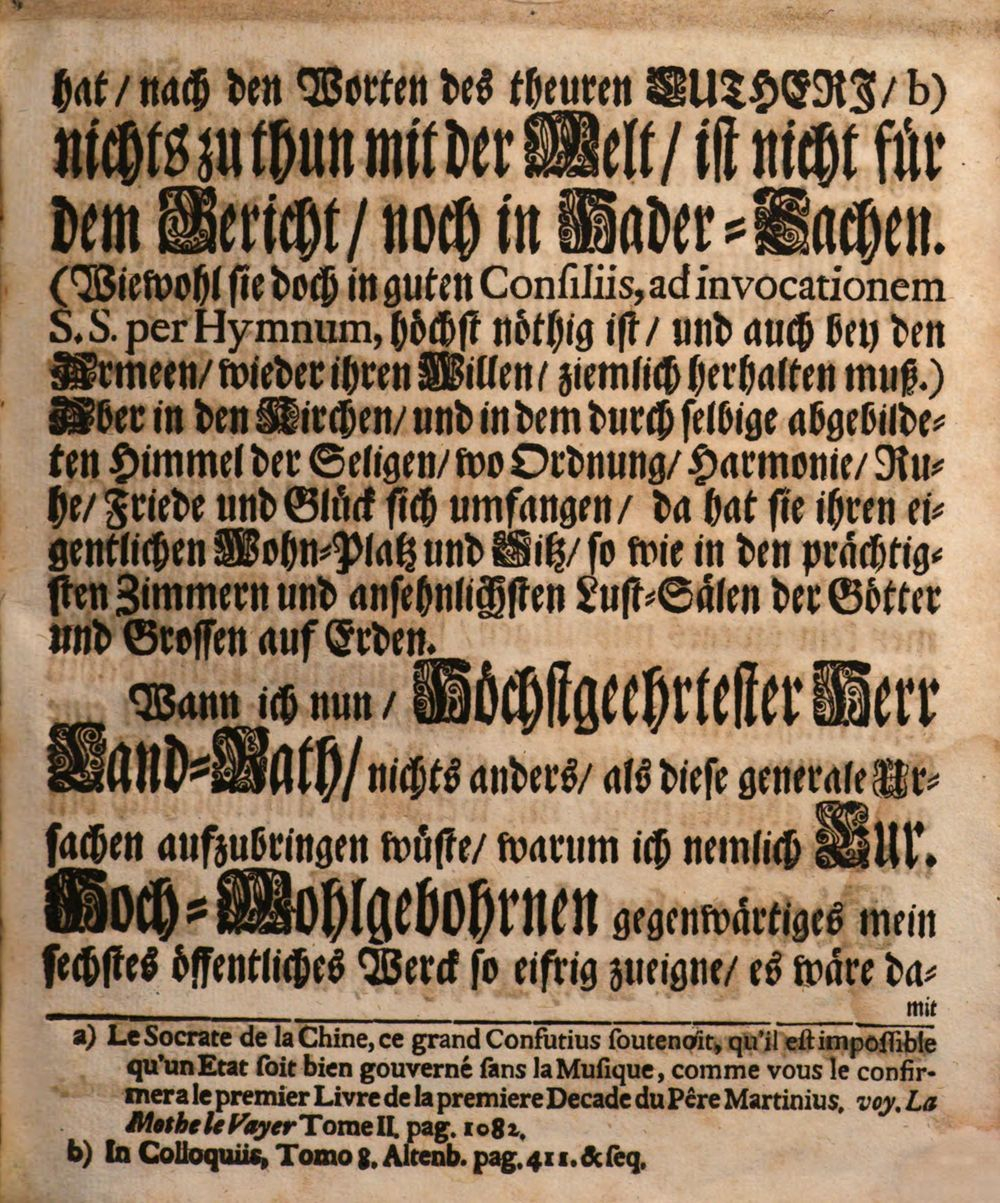 hat / nach den Worten des theuren LUTHERI / b)
nichts zu thun mit der Welt / ist nicht für
dem Gericht / noch in Hader-Sachen.
(Wiewohl sie doch in guten Consiliis, ad invocationem
S. S. per Hymnum, höchst nöthig ist / und auch bey den
Armeen / wieder ihren Willen / ziemlich herhalten muß.)
Aber in den Kirchen / und in dem durch selbige abgebilde-
ten Himmel der Seligen / wo Ordnung / Harmonie / Ru-
he / Friede und Glück sich umfangen / da hat sie ihren ei-
gentlichen Wohn-Platz und Sitz / so wie in den prächtig-
sten Zimmern und ansehnlichsten Lust-Sälen der Götter
und Grossen auf Erden.
Wann ich nun / Höchstgeehrtester Herr
Land-Rath / nichts anders / als diese generale Ur-
sachen aufzubringen wüste / warum ich nemlich Eur.
Hoch-Wohlgebohrnen gegenwärtiges mein
sechstes öffentliches Werck so eifrig zueigne / es wäre da-
mit
a) Le Socrate de la Chine, ce grand Confutius soutenoit, qu'il est impossible
qu'un Etat soit bien gouverné sans la Musique, comme vous le confir-
mera le premier Livre de la premiere Decade du Pêre Martinius. voy. La
Mothe le Vayer Tome II. pag. 1082.
b) In Colloquiis, Tomo 8. Altenb. pag. 411. & seq.